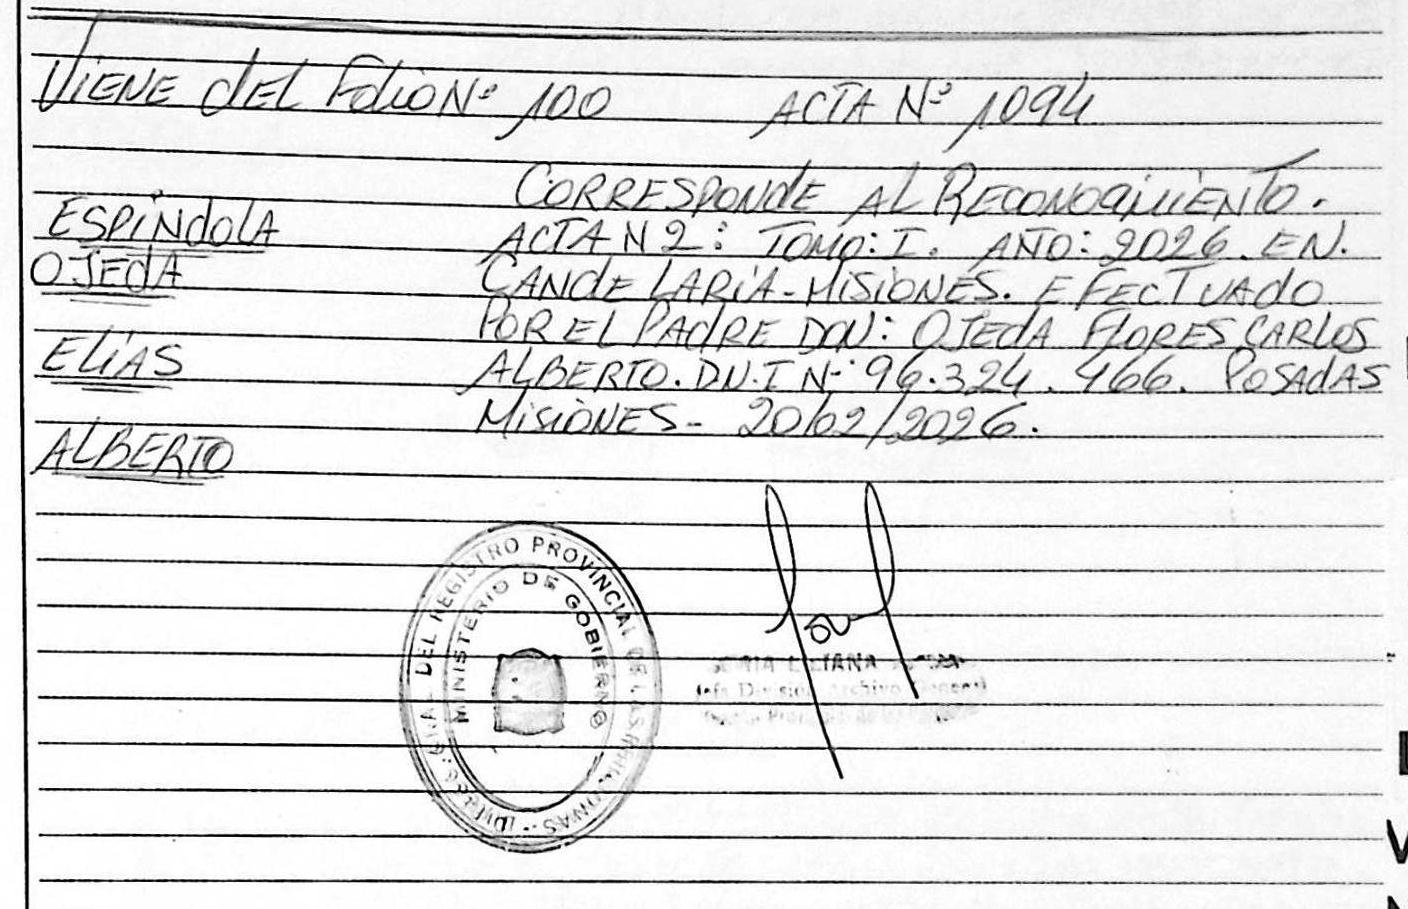 Viene del Folio Nº 100 ACTA Nº 1094
CORRESPONDE AL RECONOCIMIENTO.
ESPINDOLA
ACTA N 2: TOMO: I. AÑO: 2026. EN.
OJEDA
CANDELARIA-MISIONES. EFECTUADO
POR EL PADRE DON: OJEDA FLORES CARLOS
ELIAS
ALBERTO. D.N.I Nº 96.324.466. POSADAS
MISIONES- 20/02/2026.
ALBERTO
DEL REGISTRO PROVINCIAL DE LAS PERSONAS
MINISTERIO DE GOBIERNO
LILIANA
Jefa División Archivo General